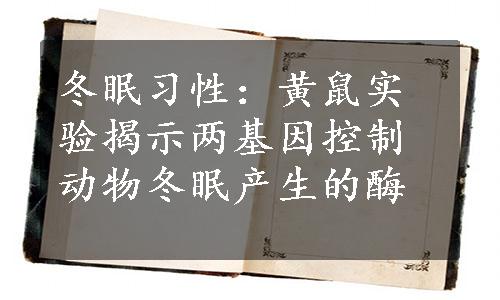 冬眠习性：黄鼠实
验揭示两基因控制
动物冬眠产生的酶